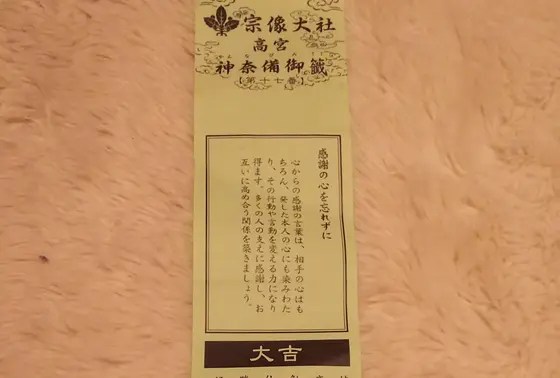 宗像大社
高宮
かんなびみくじ
神奈備御籤
【第十七番】
感謝の心を忘れずに
心からの感謝の言葉は、相手の心はも
ちろん、発した本人の心にも染みわた
り、その行動や言動を変える力になり
得ます。多くの人の支えに感謝し、お
互いに高め合う関係を築きましょう。
大吉